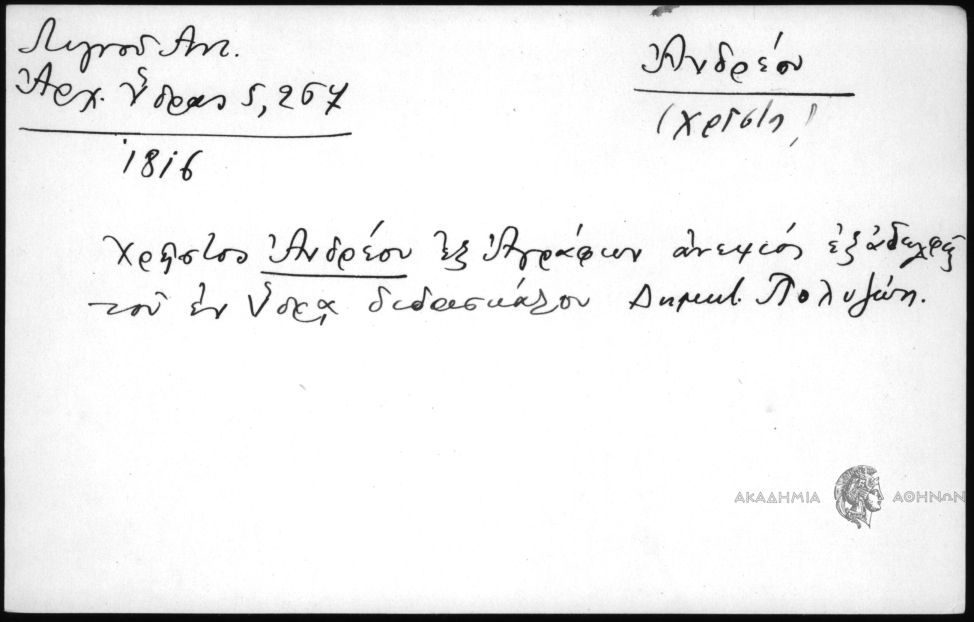 Λιγνοῦ Ἀντ.
Ἀρχ. Ὕδρας 5, 267
1816
Ἀνδρέου
(χρῖσ/η)
Χρῆστος Ἀνδρέου ἐξ Ἀγράφων ἀνεψιός ἐξ ἀδελφῆς
τοῦ ἐν Ὕδρᾳ διδασκάλου Δημητ. Πολυζώη.
ΑΚΑΔΗΜΙΑ ΑΘΗΝΩΝ